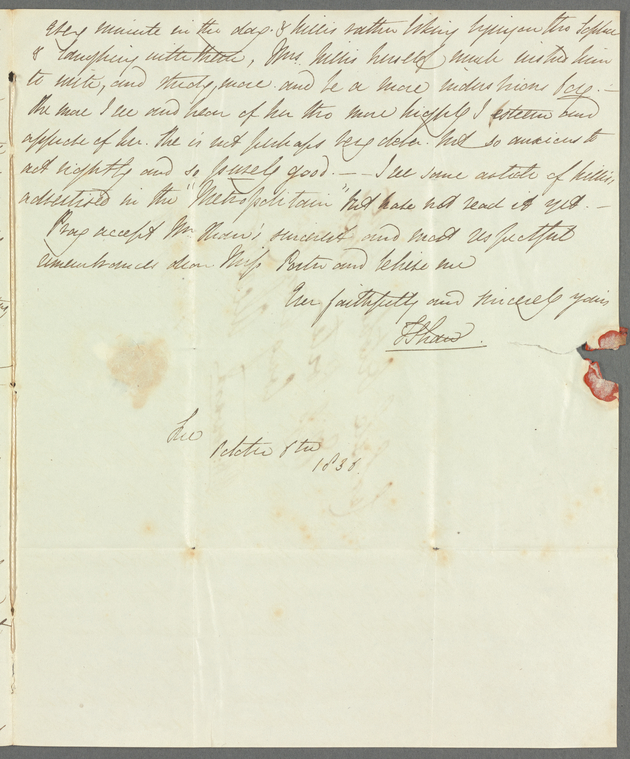 every minute in the day. & Willis rather liking lying on the Sopha
& laughing with them, Mrs. Willis herself much wished him
to write, and study more and be a more industrious boy. —
the more I see and hear of her the more highly I esteem and
approve of her. She is not perhaps very clever. but so anxious to
act rightly and so purely good. — — I see some article of Willis's
advertised in the "Metropolitain" but have not read it yet. —
Pray accept Mr. Shaw's sincerest and most respectful
remembrances dear Miss Porter and believe me
Ever faithfully and sincerely yours
Shaw.
Lee
October 8th
183